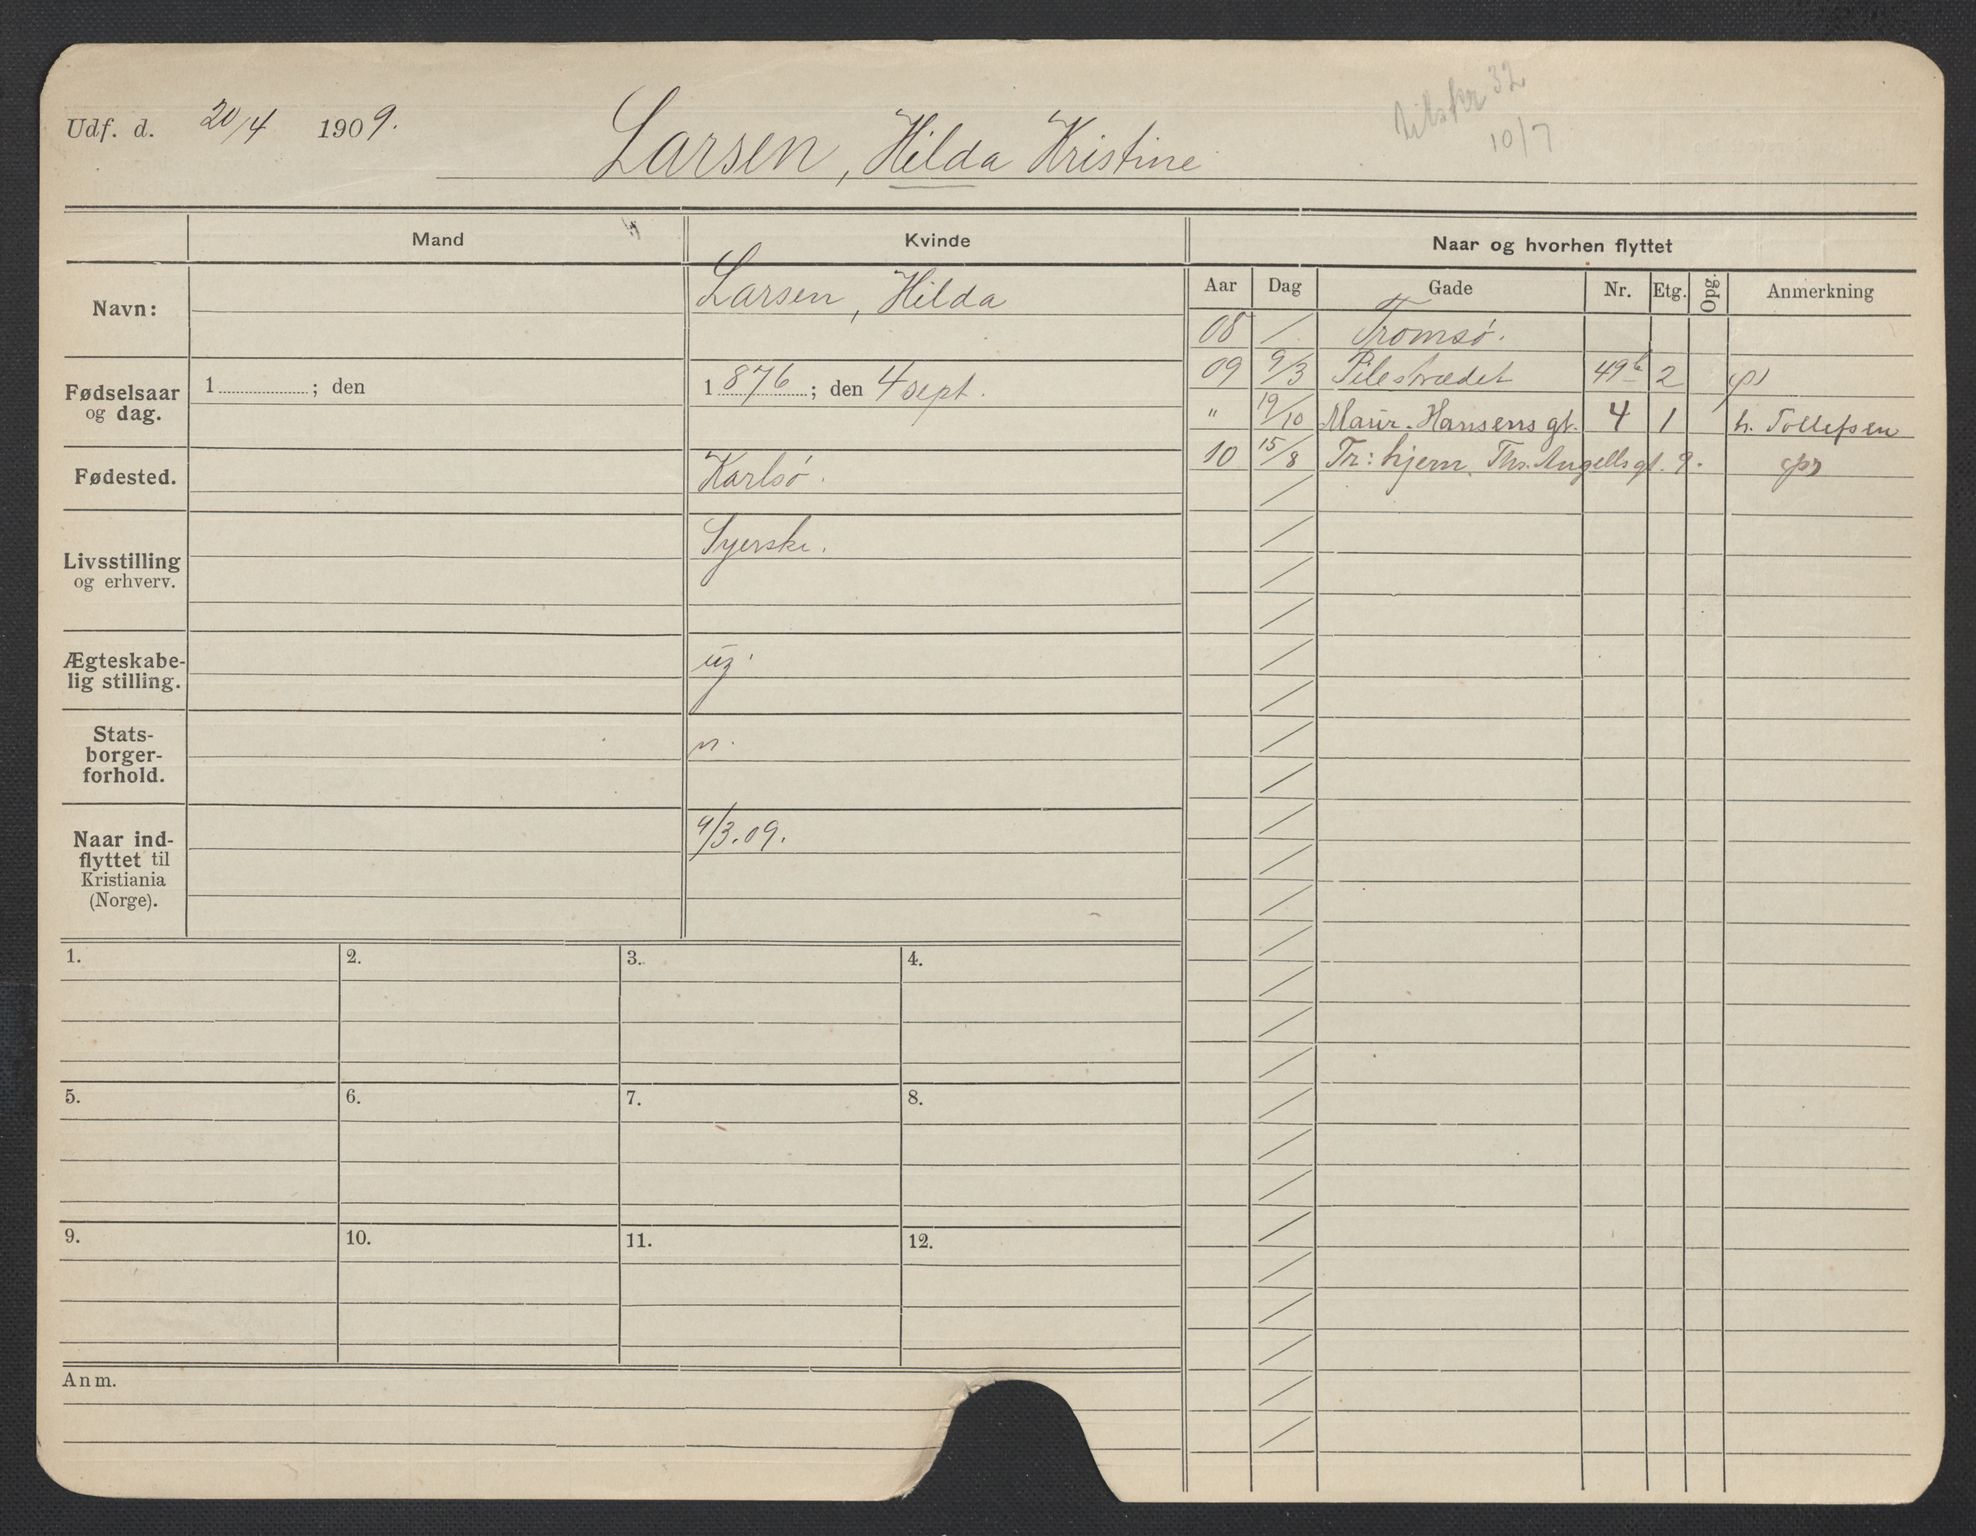 Udf. d. 20/4 1909.
Larsen, Hilda Kristine
32
10/7
Mand
Kvinde
Naar og hvorhen flyttet
Aar Dag Gade Nr. Etg. Opg. Anmerkning
Navn:
Larsen, Hilda
Fødselsaar og dag.
1 ; den
1876 ; den 4 sept.
Fødested.
Karlsø.
Livsstilling og erhverv.
Syerske.
Ægteskabe-
lig stilling.
ug.
Stats-
borger-
forhold.
n.
Naar ind-
flyttet til
Kristiania
(Norge).
9/3.09.
08 / Tromsø.
09 9/3 Pilestrædet 49b 2
" 19/10 Maur. Hansens gt. 4 1 h. Tollefsen
10 15/8 Tr:hjem. Ths. Angells gt. 9.
1. 2. 3. 4.
5. 6. 7. 8.
9. 10. 11. 12.
Anm.